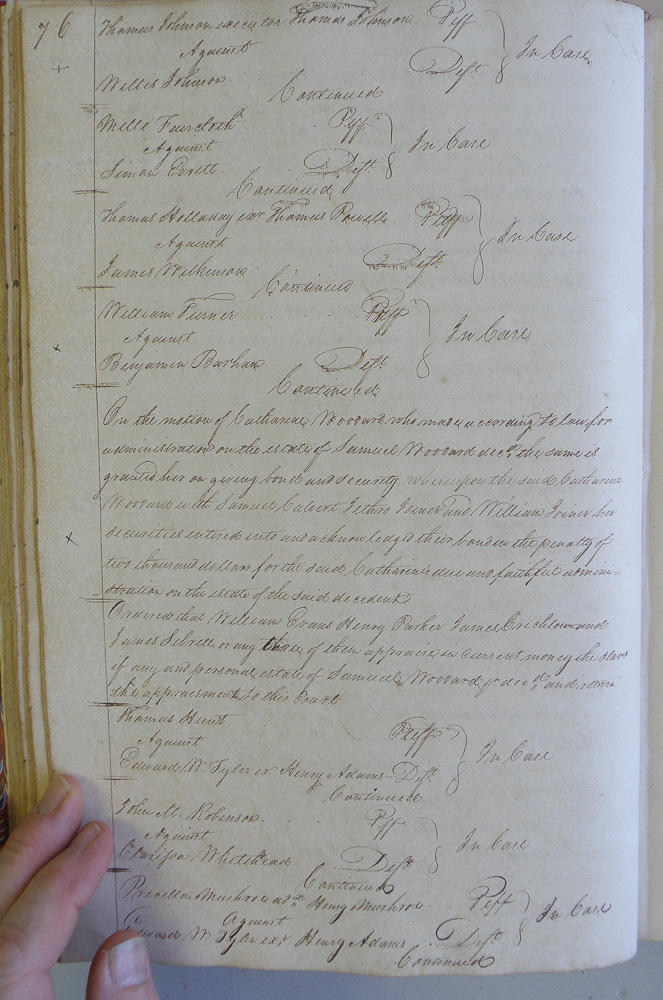 76
Thomas Johnson executor Thomas Johnson Plff
Against In Case
Willis Johnson Deft
Continued
Mills Faircloth Plff
Against In Case
Simon Everett Deft
Continued
Thomas Holladay exr Thomas Powells Plff
Against In Case
James Wilkinson Deft
Continued
William Turner Plff
Against In Case
Benjamin Barham Deft
Continued
On the motion of Catharine Woodard who made according to law for
administration on the estate of Samuel Woodard decd the same is
granted her on giving bond and security whereupon the said Catharine
Woodard with Samuel Calvert Jethro Joiner and William Joiner her
securities entered into and acknowledged their bond in the penalty of
two thousand dollars for the said Catharines due and faithful admini-
stration on the estate of the said decedent
Ordered that William Evans Henry Parker James Crichlow and
James Sebrell or any three of them appraise in current money the slaves
if any and personal estate of Samuel Woodard decd and return
the appraisment to this Court
Thomas Hunt Plff
Against In Case
Edward W. Tyler exr Henry Adams Deft
Continued
John M. Robinson Plff
Against In Case
Whitehead Deft
Continued
Henry Plff
Against In Case
Edward W. Tyler exr Henry Adams Deft
Continued